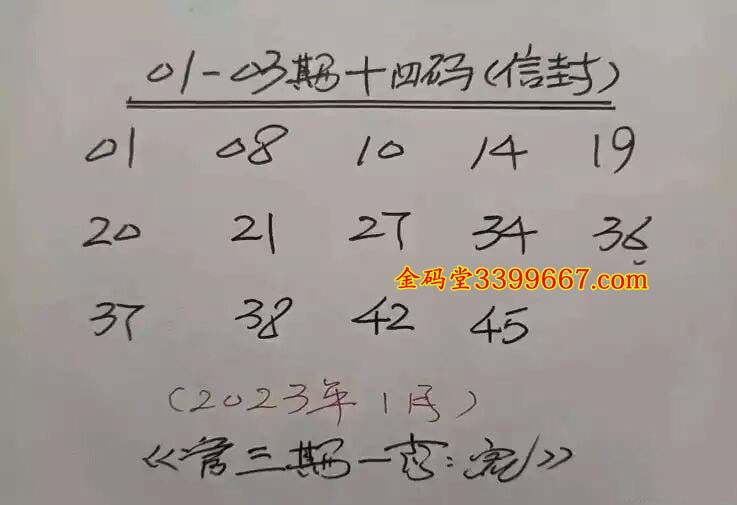 01-03期十四码(信封)
01 08 10 14 19
20 21 27 34 36
金码堂3399667.com
37 38 42 45
(2023年1月)
《管三期一